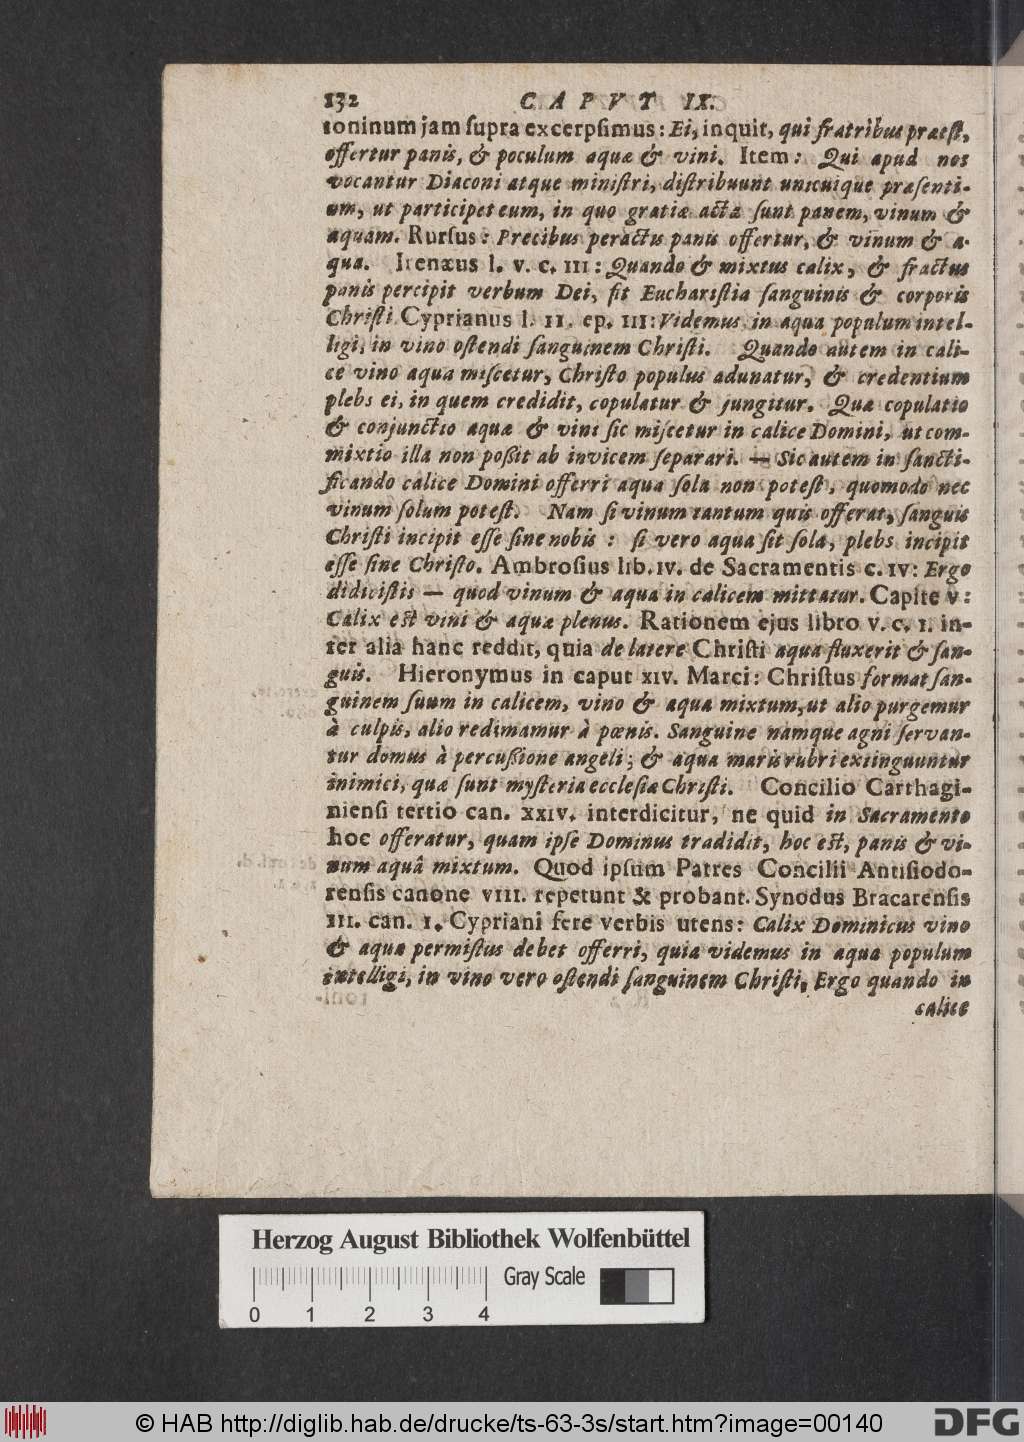 132 CAPVT IX.
toninum jam ſupra excerpſimus: Ei, inquit, qui fratribus præeſt,
offertur panis, & poculum aquæ & vini. Item: Qui apud nos
vocantur Diaconi atque miniſtri, diſtribuunt unicuique præſenti-
um, ut participet eum, in quo gratiæ actæ ſunt panem, vinum &
aquam. Rurſus: Precibus peractis panis offertur, & vinum & a-
qua. Irenæus l. v. c. III: Quando & mixtus calix, & fractus
panis percipit verbum Dei, fit Euchariſtia ſanguinis & corporis
Chriſti. Cyprianus l. II. ep. III: Videmus in aqua populum intel-
ligi, in vino oſtendi ſanguinem Chriſti. Quando autem in cali-
ce vino aqua miſcetur, Chriſto populus adunatur, & credentium
plebs ei, in quem credidit, copulatur & jungitur. Quæ copulatio
& conjunctio aquæ & vini ſic miſcetur in calice Domini, ut com-
mixtio illa non poßit ab invicem ſeparari. — Sic autem in ſancti-
ficando calice Domini offerri aqua ſola non poteſt, quomodo nec
vinum ſolum poteſt. Nam ſi vinum tantum quis offerat, ſanguis
Chriſti incipit eſſe ſine nobis : ſi vero aqua ſit ſola, plebs incipit
eſſe ſine Chriſto. Ambroſius lib. IV. de Sacramentis c. IV: Ergo
didiciſtis — quod vinum & aqua in calicem mittatur. Capite V:
Calix eſt vini & aquæ plenus. Rationem ejus libro v. c. I. in-
ter alia hanc reddit, quia de latere Chriſti aqua fluxerit & ſan-
guis. Hieronymus in caput XIV. Marci: Chriſtus format ſan-
guinem ſuum in calicem, vino & aqua mixtum, ut alio purgemur
à culpis, alio redimamur à pœnis. Sanguine namque agni ſervan-
tur domus à percußione angeli; & aqua maris rubri extinguuntur
inimici, quæ ſunt myſteria eccleſiæ Chriſti. Concilio Carthagi-
nienſi tertio can. XXIV. interdicitur, ne quid in Sacramento
hoc offeratur, quam ipſe Dominus tradidit, hoc eſt, panis & vi-
num aquâ mixtum. Quod ipſum Patres Concilii Antiſiodo-
renſis canone VIII. repetunt & probant. Synodus Bracarenſis
III. can. I. Cypriani fere verbis utens: Calix Dominicus vino
& aqua permiſtus debet offerri, quia videmus in aqua populum
intelligi, in vino vero oſtendi ſanguinem Chriſti, Ergo quando in
calice
Herzog August Bibliothek Wolfenbüttel
Gray Scale
0 1 2 3 4
© HAB http://diglib.hab.de/drucke/ts-63-3s/start.htm?image=00140
DFG